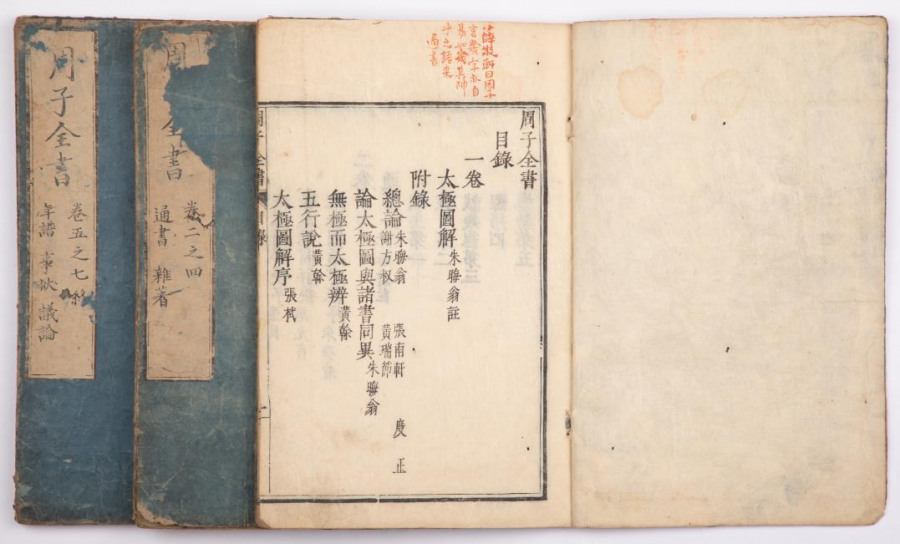 周子全書
卷五之七
年譜 事狀 議論
周
全書
卷二之四
通書 雜著
周子全書
目錄
一卷
太極圖解 朱晦翁註
附錄
總論 朱晦翁 張南軒 度正
謝方叔 黃瑞節
論太極圖與諸書同異 朱晦翁
無極而太極辨 黃榦
五行說 黃榦
太極圖解序 張栻
周子全書 目錄 一